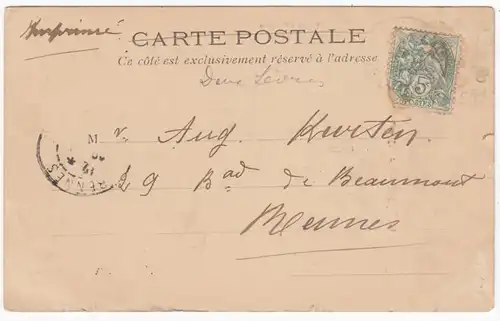 Imprimé
CARTE POSTALE
Ce côté est exclusivement réservé à l'adresse
Deux Sèvres
5
POSTES
Mr. Aug. Kersten
29 Bad de Beaumont
Rennes
RENNES
12